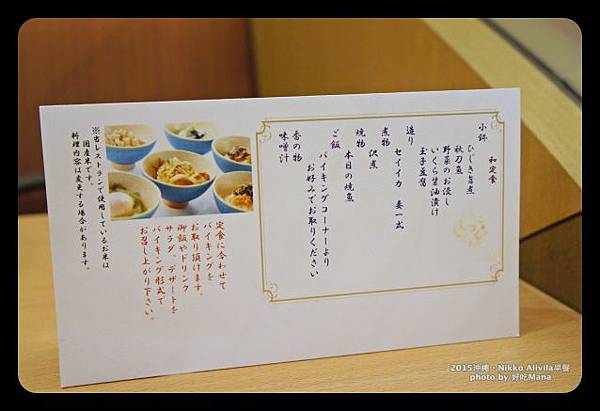 和定食
小鉢
ひじき旨煮
秋刀魚
野菜のお浸
いくら醤油漬け
玉子豆腐
造り
セイイカ 妻一式
煮物
沢煮
焼物
本日の焼魚
ご飯
バイキングコーナーより
お好みでお取りください
香の物
味噌汁
定食に合わせて
バイキングを
お取り頂けます。
御飯やドリンク
サラダ、デザートを
バイキング形式で
お召し上がり下さい。
※当レストランで使用しているお米は
国産米です。
料理内容は変更する場合があります。
2015沖繩·Nikko Alivila早餐
photo by 好吃Mana